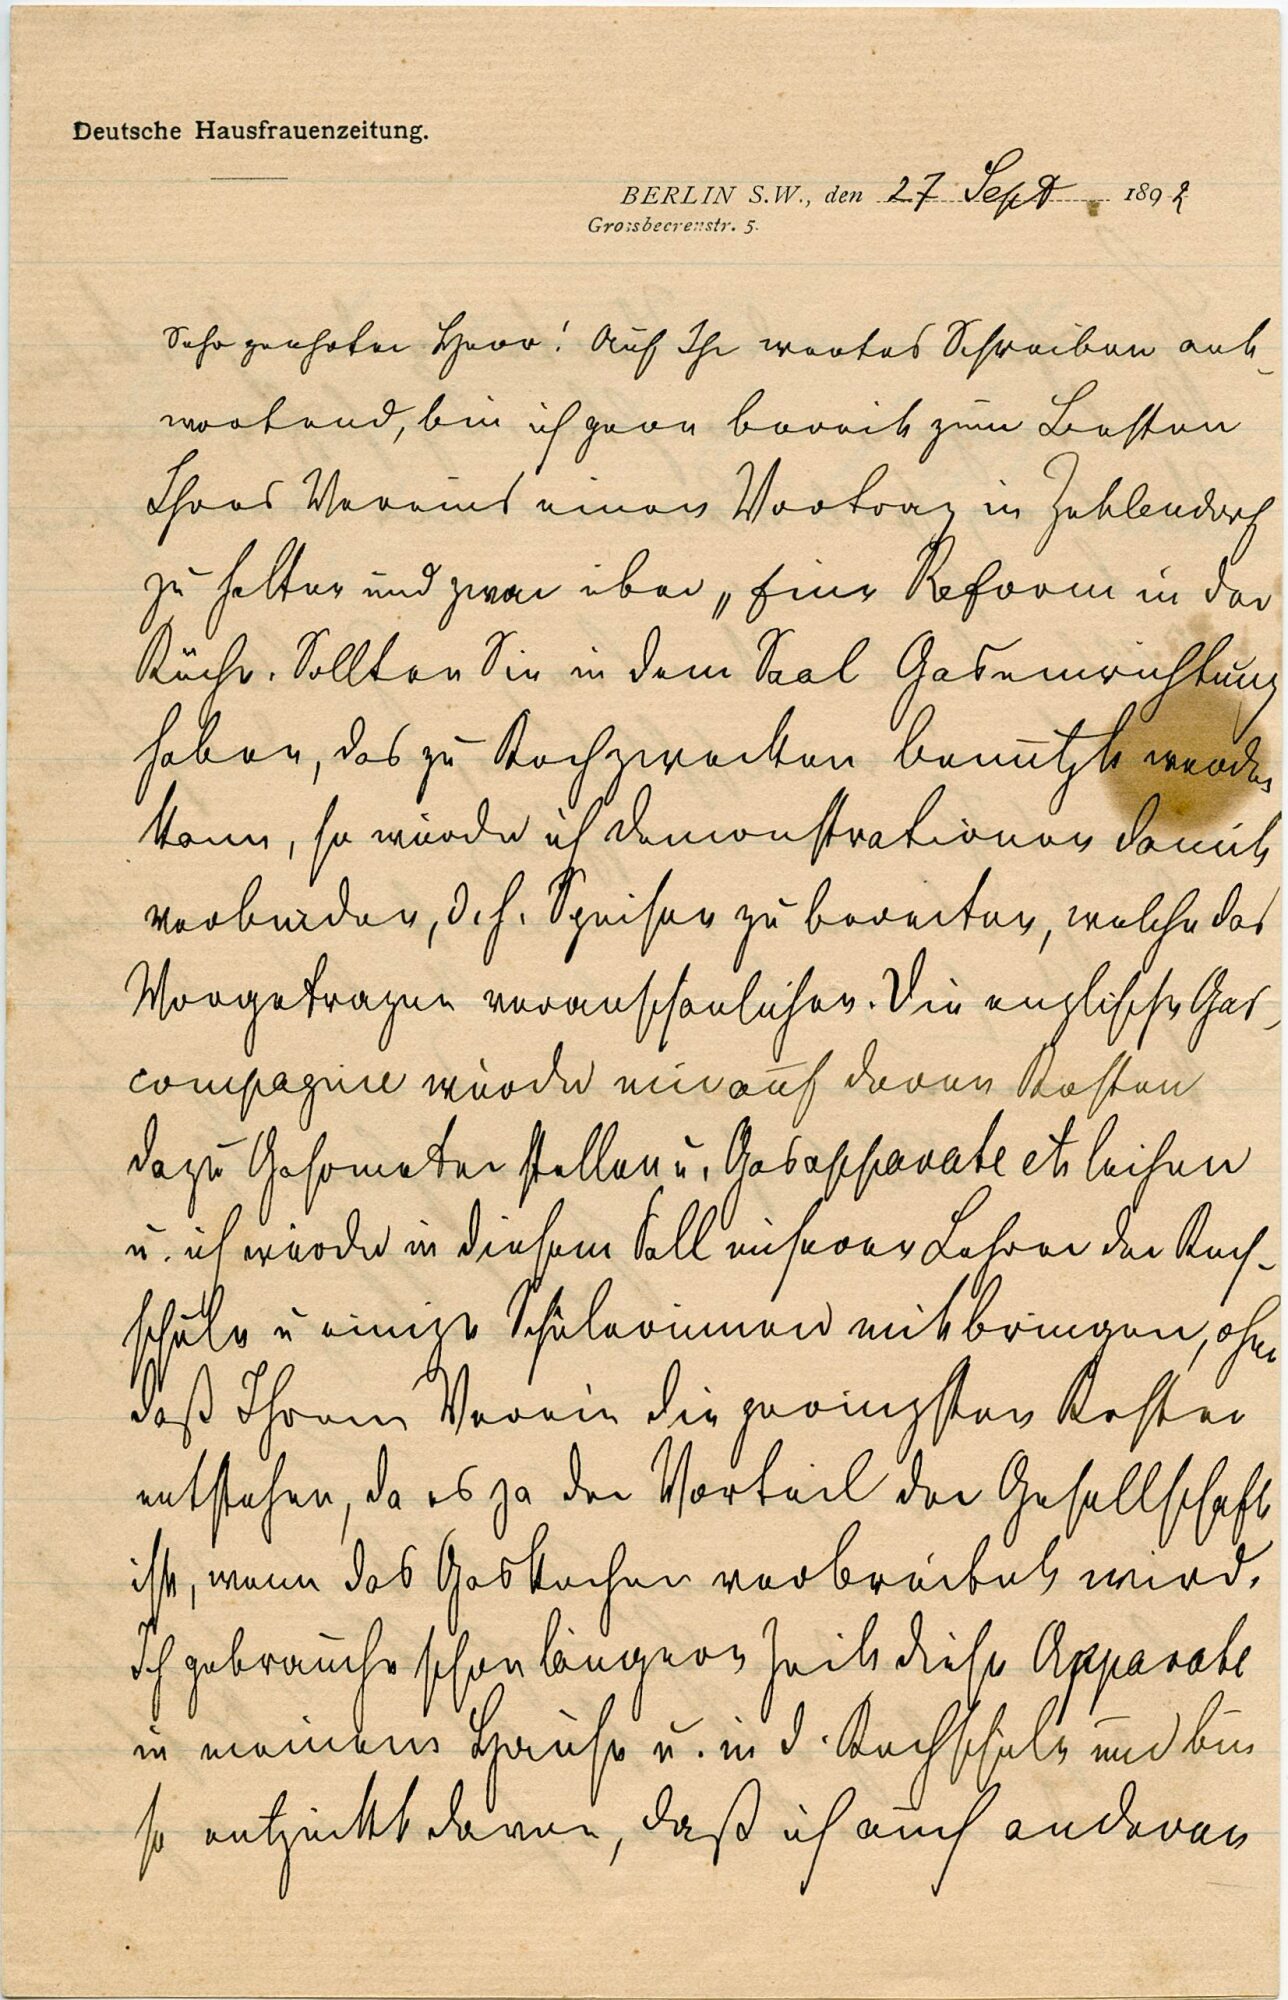 Deutsche Hausfrauenzeitung.
BERLIN S.W., den 27 Sept 1892
Grossbeerenstr. 5.
Sehr geehrter Herr! Auf Ihr wertes Schreiben ant-
wortend, bin ich gern bereit zum Besten
Ihres Vereins einen Vortrag in Zehlendorf
zu halten und zwar über „Eine Reform in der
Küche. Sollten Sie in dem Saal Gaseinrichtung
haben, das zu Kochzwecken benützt werden
kann, so würde ich Demonstrationen damit
verbinden, d. h. Speisen zu bereiten, welche das
Vorgetragene veranschaulichen. Die englische Gas-
compagnie würde mir auf deren Kosten
dazu Gasometer stellen u. Gasapparate etc leihen
u. ich würde in diesem Fall unseren Lehrer der Koch-
schule u einige Schülerinnen mitbringen, ohne
daß Ihrem Verein die geringsten Kosten
entstehen, da es ja der Vorteil der Gesellschaft
ist, wenn das Gaskochen verbreitet wird.
Ich gebrauche schon längere Zeit diese Apparate
in meinem Hause u. in d. Kochschule und bin
so entzückt davon, daß ich auch anderen